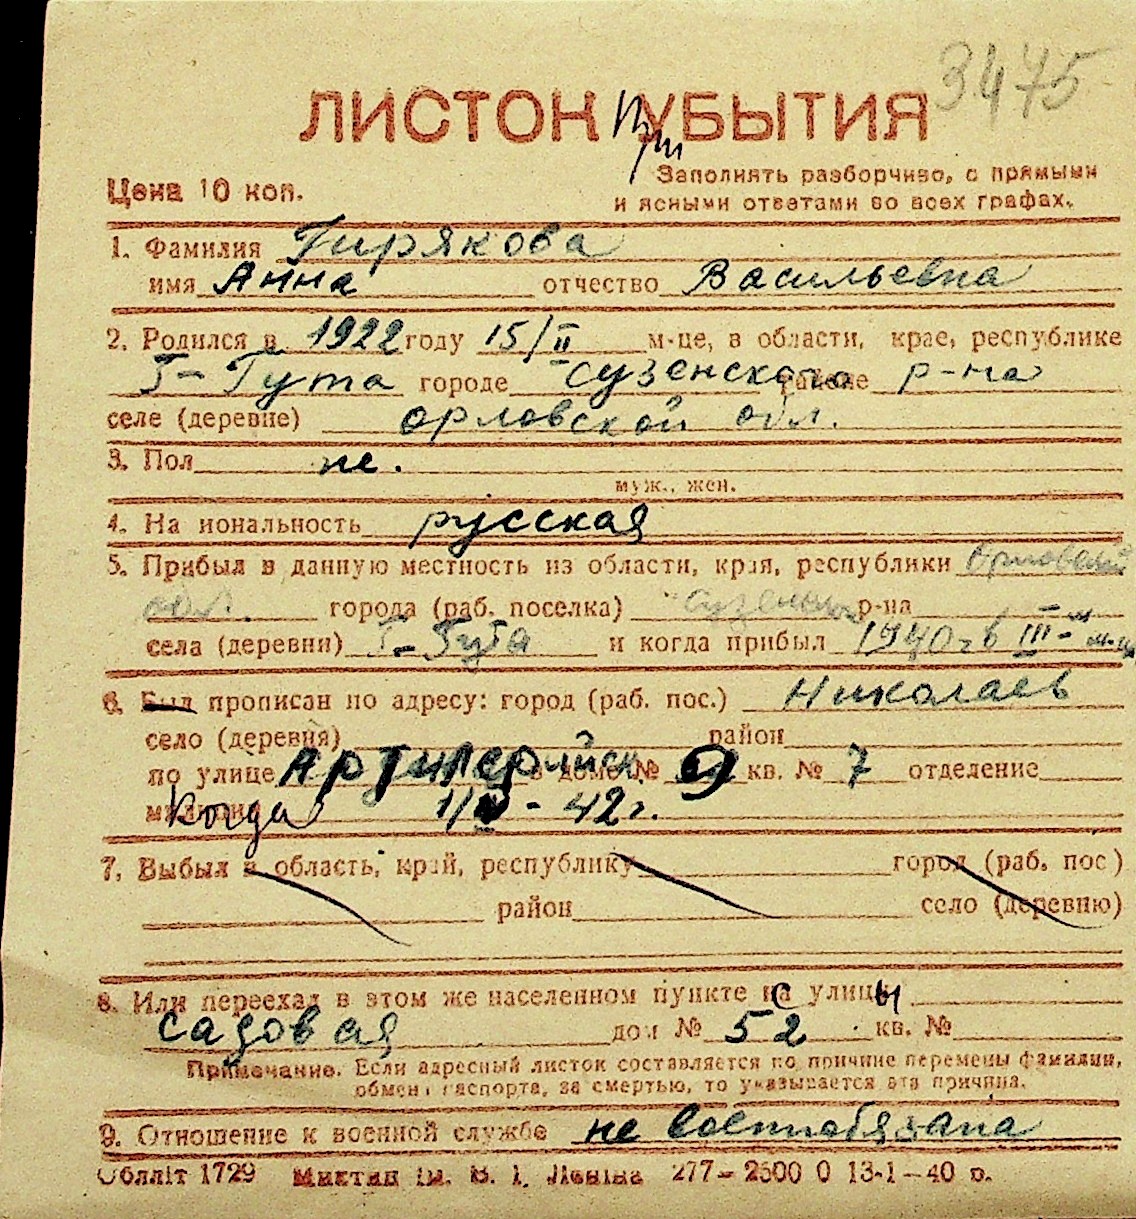 3475
ЛИСТОК УБЫТИЯ
Цена 10 коп.
Заполнять разборчиво, с прямыми
и ясными ответами во всех графах.
1. Фамилия Гирякова
имя Анна отчество Васильевна
2. Родился в 1922 году 15/II м-це, в области, крае, республике
Г-Гута городе Сузенского районе р-на
селе (деревне) орловской обл.
3. Пол
муж., жен.
4. На иональность русская
5. Прибыл в данную местность из области, края, республики Орловской
обл. города (раб. поселка) Сузенск р-на
села (деревни) Г-Гута и когда прибыл 1940 г. в III-м м-це
6. Был прописан по адресу: город (раб. пос.) Николаев
село (деревня) район
по улице Артилерийск в доме № 9 кв. № 7 отделение
милиции Когда 1/ - 42 г.
7. Выбыл в область, край, республику город (раб. пос)
район село (деревню)
8. Или переехал в этом же населенном пункте с улицы
садовая дом № 52 кв. №
Примечание. Если адресный листок составляется по причине перемены фамилии,
обмена паспорта, за смертью, то указывается эта причина.
9. Отношение к военной службе не военнообязана
Обллiт 1729 iм. В. I. Ленiна 277-2500 0 13-1-40 р.